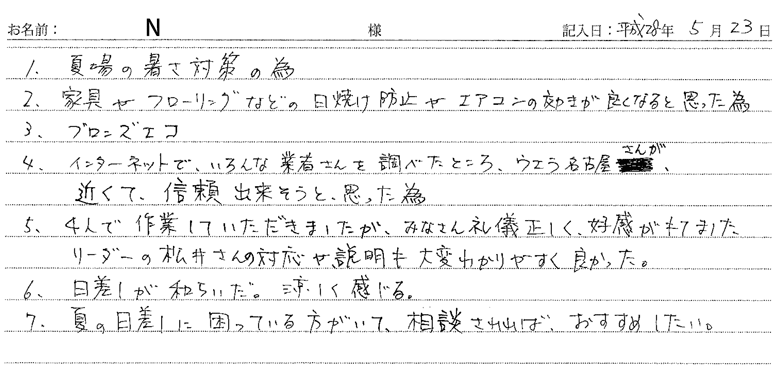 お名前： N 様 記入日：平成28年 5月 23日
1. 夏場の暑さ対策の為
2. 家具やフローリングなどの日焼け防止やエアコンの効きが良くなると思った為
3. ブロンズエコ
4. インターネットで、いろんな業者さんを調べたところ、ウエラ名古屋さんが、
近くて、信頼出来そうと、思った為
5. 4人で作業していただきましたが、みなさん礼儀正しく、好感がもてました
リーダーの松井さんの対応や説明も大変わかりやすく良かった。
6. 日差しが和らいだ。涼しく感じる。
7. 夏の日差しに困っている方がいて、相談されれば、おすすめしたい。